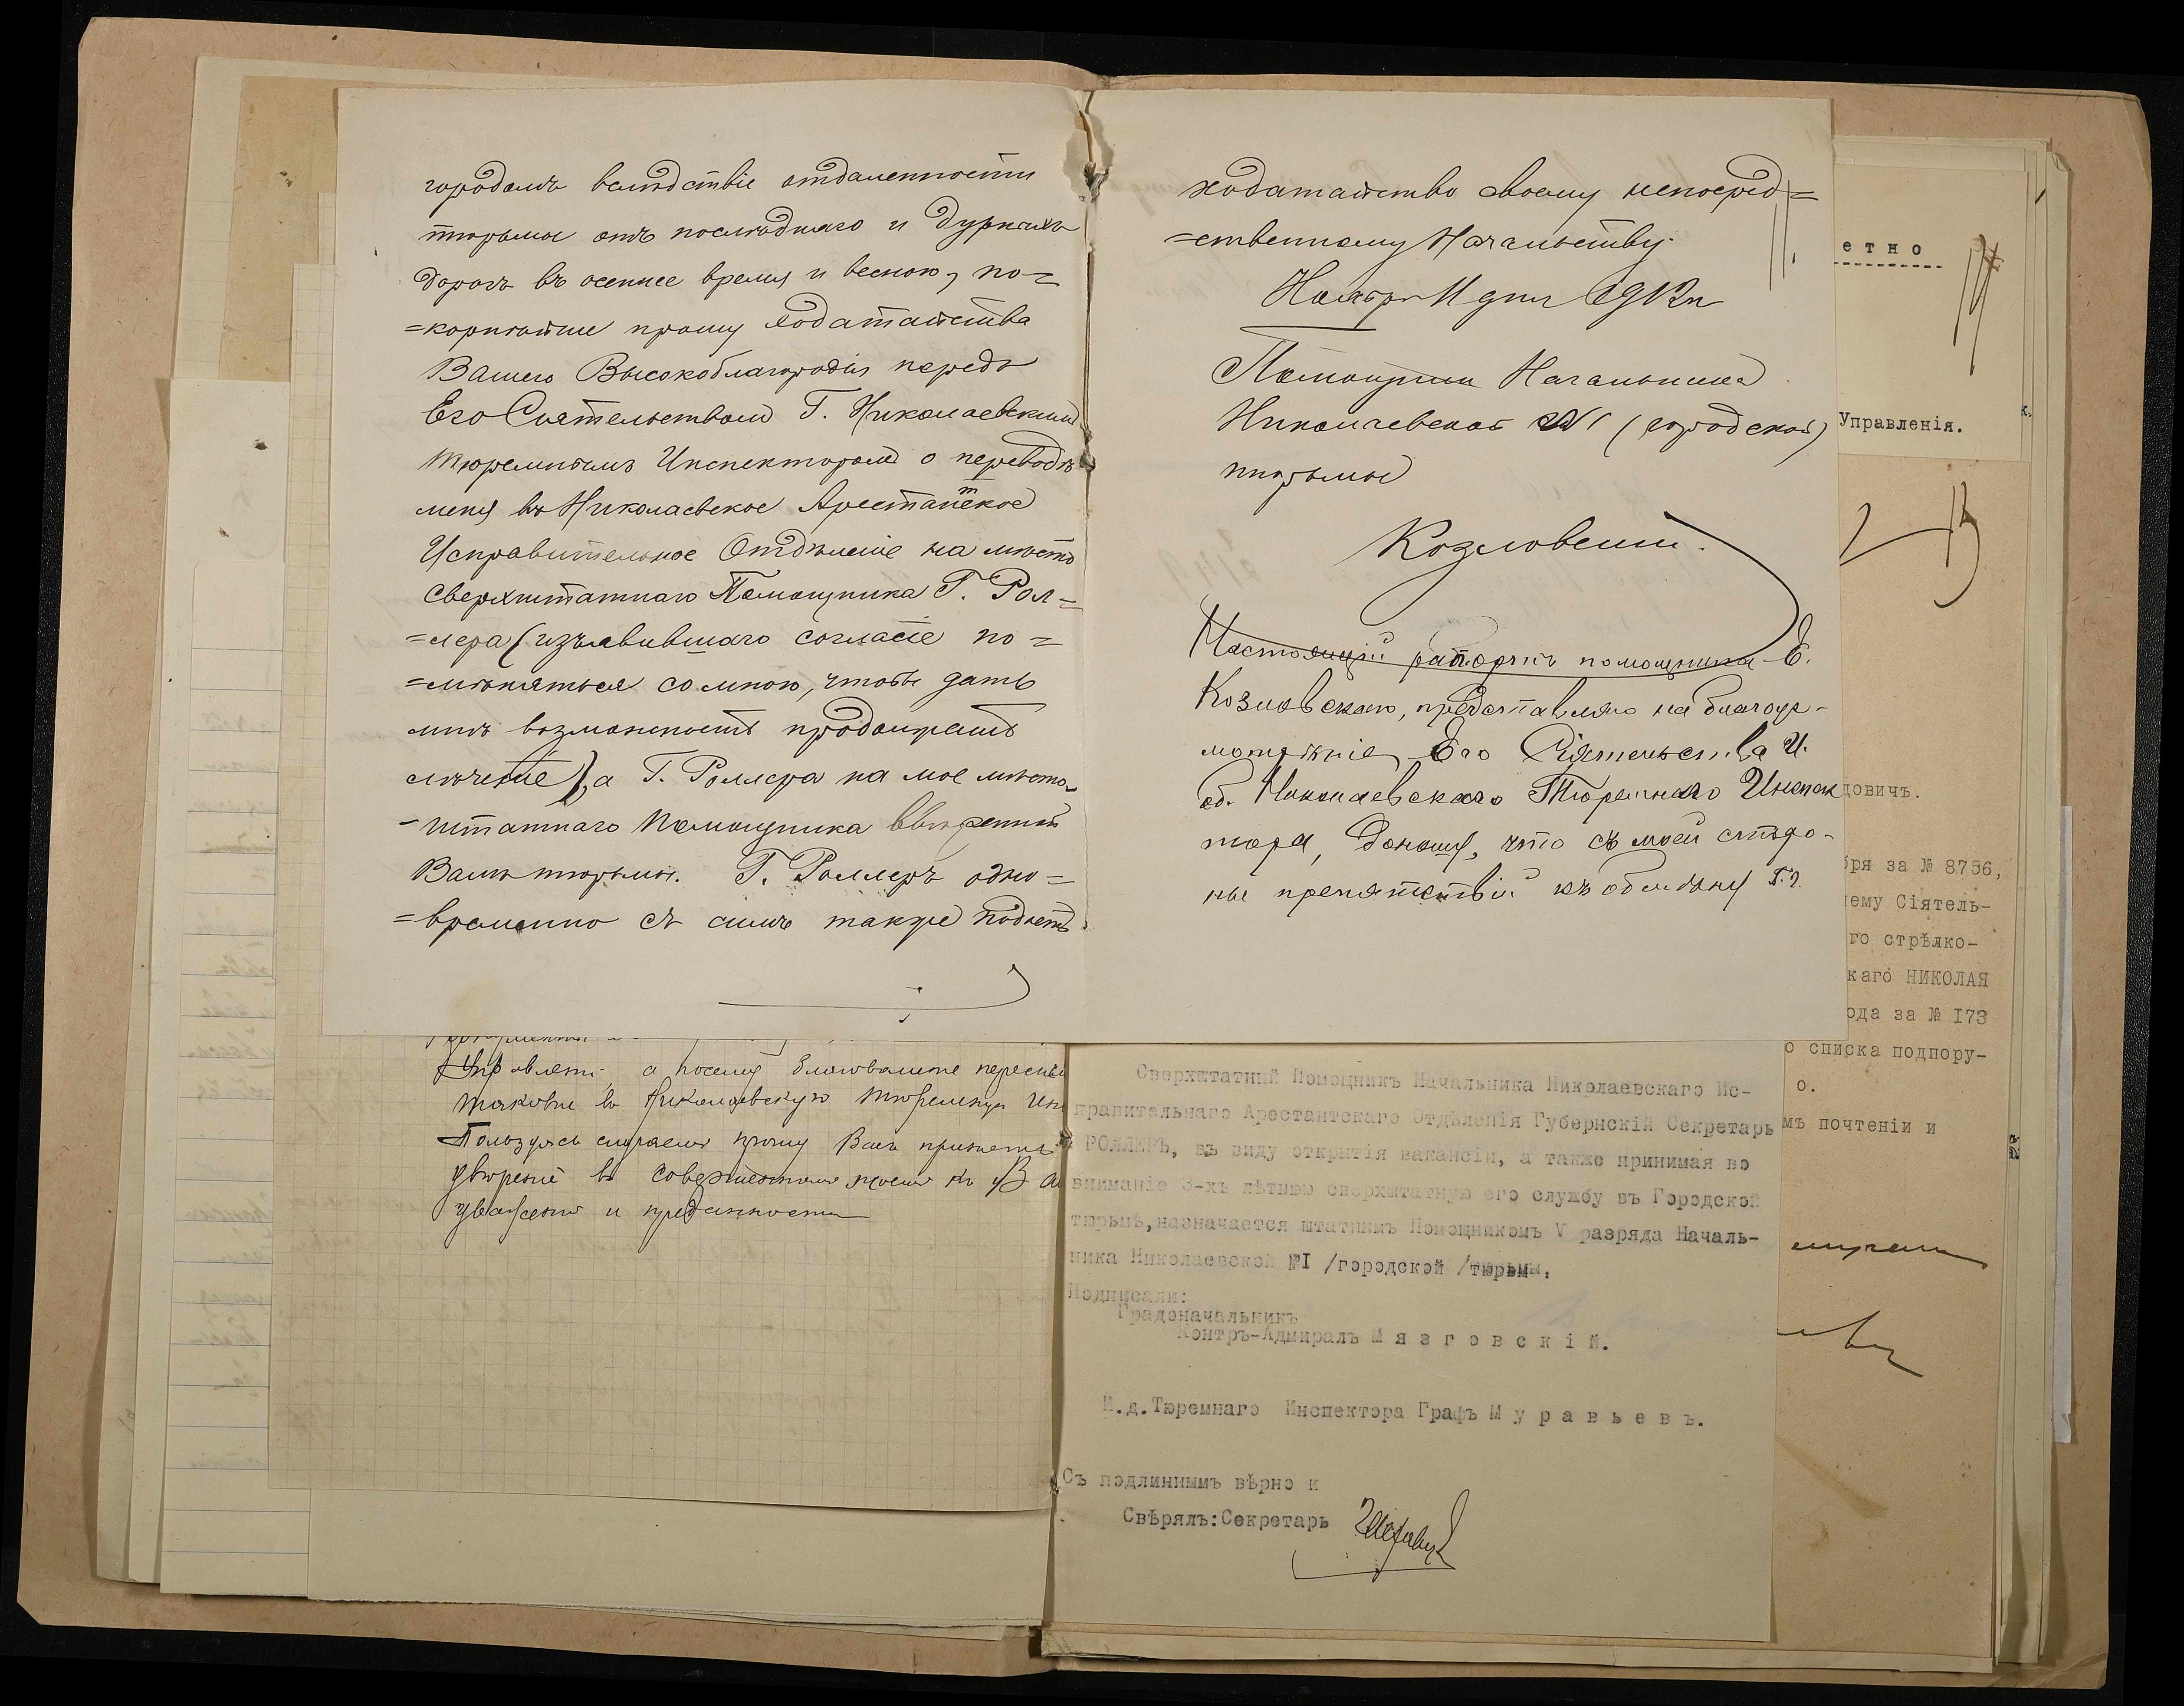 городомъ вслѣдствіе отдаленности
тюрьмы отъ послѣдняго и дурныхъ
дорогъ въ осеннее время и весною, по=
=корнѣйше прошу ходатайства
Вашего Высокоблагородія передъ
Его Сіятельствомъ Г. Николаевскимъ
Тюремнымъ Инспекторомъ о переводѣ
меня въ Николаевское Арестантское
Исправительное Отдѣленіе на мѣсто
Сверхштатнаго Помощника Г. Рол=
=лера (изъявившаго согласіе по=
=мѣняться со мною, чтобы дать
мнѣ возможность продолжать
лѣченіе), а Г. Роллера на мое мѣсто
-штатнаго Помощника ввѣренной
Вамъ тюрьмы. Г. Роллеръ одно=
=временно съ симъ также подаетъ
ходатайство своему непосред=
=ственному Начальству.
Ноября 11 дня 1912 г.
Помощникъ Начальника
Николаевской №1 (городской)
тюрьмы
Козловскій.
Настоящій рапортъ помощника Е.
Козловскаго, представляю на благоус-
мотрѣніе Его Сіятельства И.
об. Николаевскаго Тюремнаго Инспек
тора, доношу, что съ моей сторо-
ны препятствій къ обмѣну г.г.
етно
Управленія.
довичъ.
бря за № 8756,
ему Сіятель-
го стрѣлко-
каго НИКОЛАЯ
ода за № 173
о списка подпору-
о.
мъ почтеніи и
а посему благоволите
таковые въ Николаевскую Тюремную
Пользуясь случаемъ прошу Васъ принять
увѣреніе въ совершенномъ моемъ къ В
уваженіи и преданности
Сверхштатный Помощникъ Начальника Николаевскаго Ис-
правительнаго Арестантскаго Отдѣленія Губернскій Секретарь
РОЛЛЕРЪ, въ виду открытія вакансіи, а также принимая во
вниманіе 3-хъ лѣтнюю сверхштатную его службу въ Городской
тюрьмѣ, назначается штатнымъ Помощникомъ V разряда Началь-
ника Николаевской №I /городской /тюрьмы.
Подписали:
Градоначальникъ
Контръ-Адмиралъ Мязговскій.
И.д.Тюремнаго Инспектора Графъ Муравьевъ.
Съ подлиннымъ вѣрно и
Свѣрялъ:Секретарь